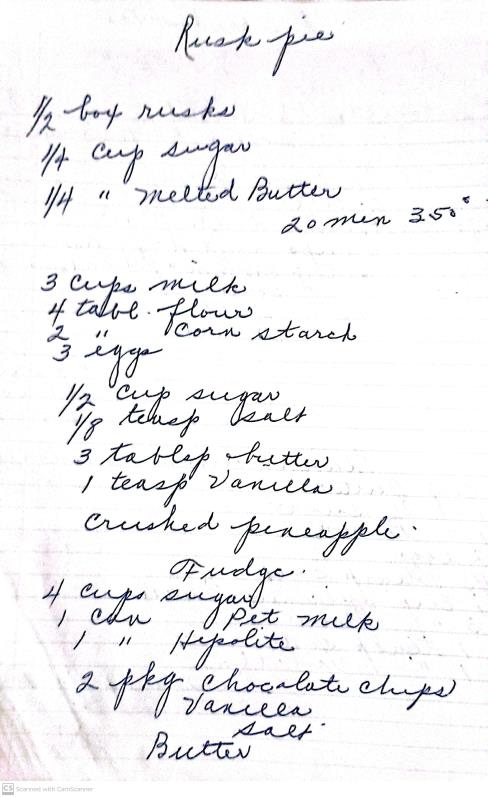 Rusk pie
1/2 box rusks
1/4 cup sugar
1/4 " Melted Butter
20 min 350°
3 cups milk
4 tabl. flour
2 " Corn starch
3 eggs
1/2 cup sugar
1/8 teasp salt
3 tablsp butter
1 teasp Vanilla
Crushed pineapple.
Fudge.
4 cups sugar
1 can Pet milk
1 " Hipolite
2 pkg chocolate chips
Vanilla
salt
Butter
CS Scanned with CamScanner